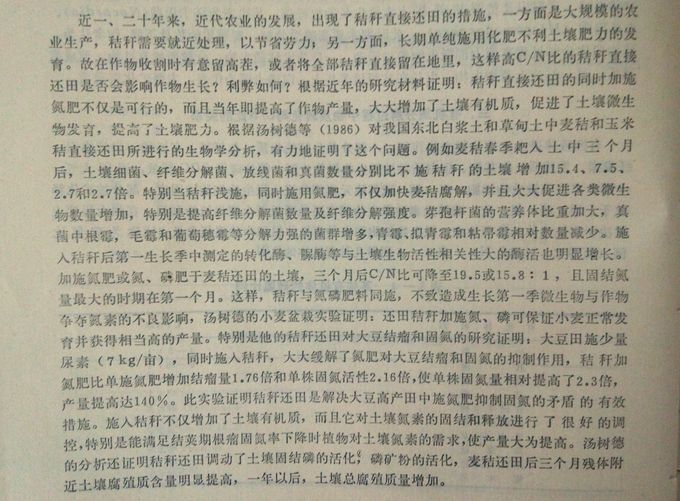 近一、二十年来，近代农业的发展，出现了秸秆直接还田的措施，一方面是大规模的农
业生产，秸秆需要就近处理，以节省劳力；另一方面，长期单纯施用化肥不利土壤肥力的发
育。故在作物收割时有意留高茬，或者将全部秸秆直接留在地里，这样高C/N比的秸秆直接
还田是否会影响作物生长？利弊如何？根据近年的研究材料证明：秸秆直接还田的同时加施
氮肥不仅是可行的，而且当年即提高了作物产量，大大增加了土壤有机质，促进了土壤微生
物发育，提高了土壤肥力。根据汤树德等（1986）对我国东北白浆土和草甸土中麦秸和玉米
秸直接还田所进行的生物学分析，有力地证明了这个问题。例如麦秸春季耙入土中三个月
后，土壤细菌、纤维分解菌、放线菌和真菌数量分别比不施秸秆的土壤增加15.4、7.5、
2.7和2.7倍。特别当秸秆浅施，同时施用氮肥，不仅加快麦秸腐解，并且大大促进各类微生
物数量增加，特别是提高纤维分解菌数量及纤维分解强度。芽孢杆菌的营养体比重加大，真
菌中根霉，毛霉和葡萄穗霉等分解力强的菌群增多，青霉、拟青霉和粘帚霉相对数量减少。施
入秸秆后第一生长季中测定的转化酶、脲酶等与土壤生物活性相关性大的酶活也明显增长。
加施氮肥或氮、磷肥于麦秸还田的土壤，三个月后C/N比可降至19.5或15.8：1，且固结氮
量最大的时期在第一个月。这样，秸秆与氮磷肥料同施，不致造成生长第一季微生物与作物
争夺氮素的不良影响，汤树德的小麦盆栽实验证明：还田秸秆加施氮、磷可保证小麦正常发
育并获得相当高的产量。特别是他的秸秆还田对大豆结瘤和固氮的研究证明：大豆田施少量
尿素（7kg/亩），同时施入秸秆，大大缓解了氮肥对大豆结瘤和固氮的抑制作用，秸秆加
氮肥比单施氮肥增加结瘤量1.76倍和单株固氮活性2.16倍，使单株固氮量相对提高了2.3倍，
产量提高达140%。此实验证明秸秆还田是解决大豆高产田中施氮肥抑制固氮的矛盾的有效
措施。施入秸秆不仅增加了土壤有机质，而且它对土壤氮素的固结和释放进行了很好的调
控，特别是能满足结荚期根瘤固氮率下降时植物对土壤氮素的需求，使产量大为提高。汤树德
的分析还证明秸秆还田调动了土壤固结磷的活化，磷矿粉的活化，麦秸还田后三个月残体附
近土壤腐殖质含量明显提高，一年以后，土壤总腐殖质量增加。